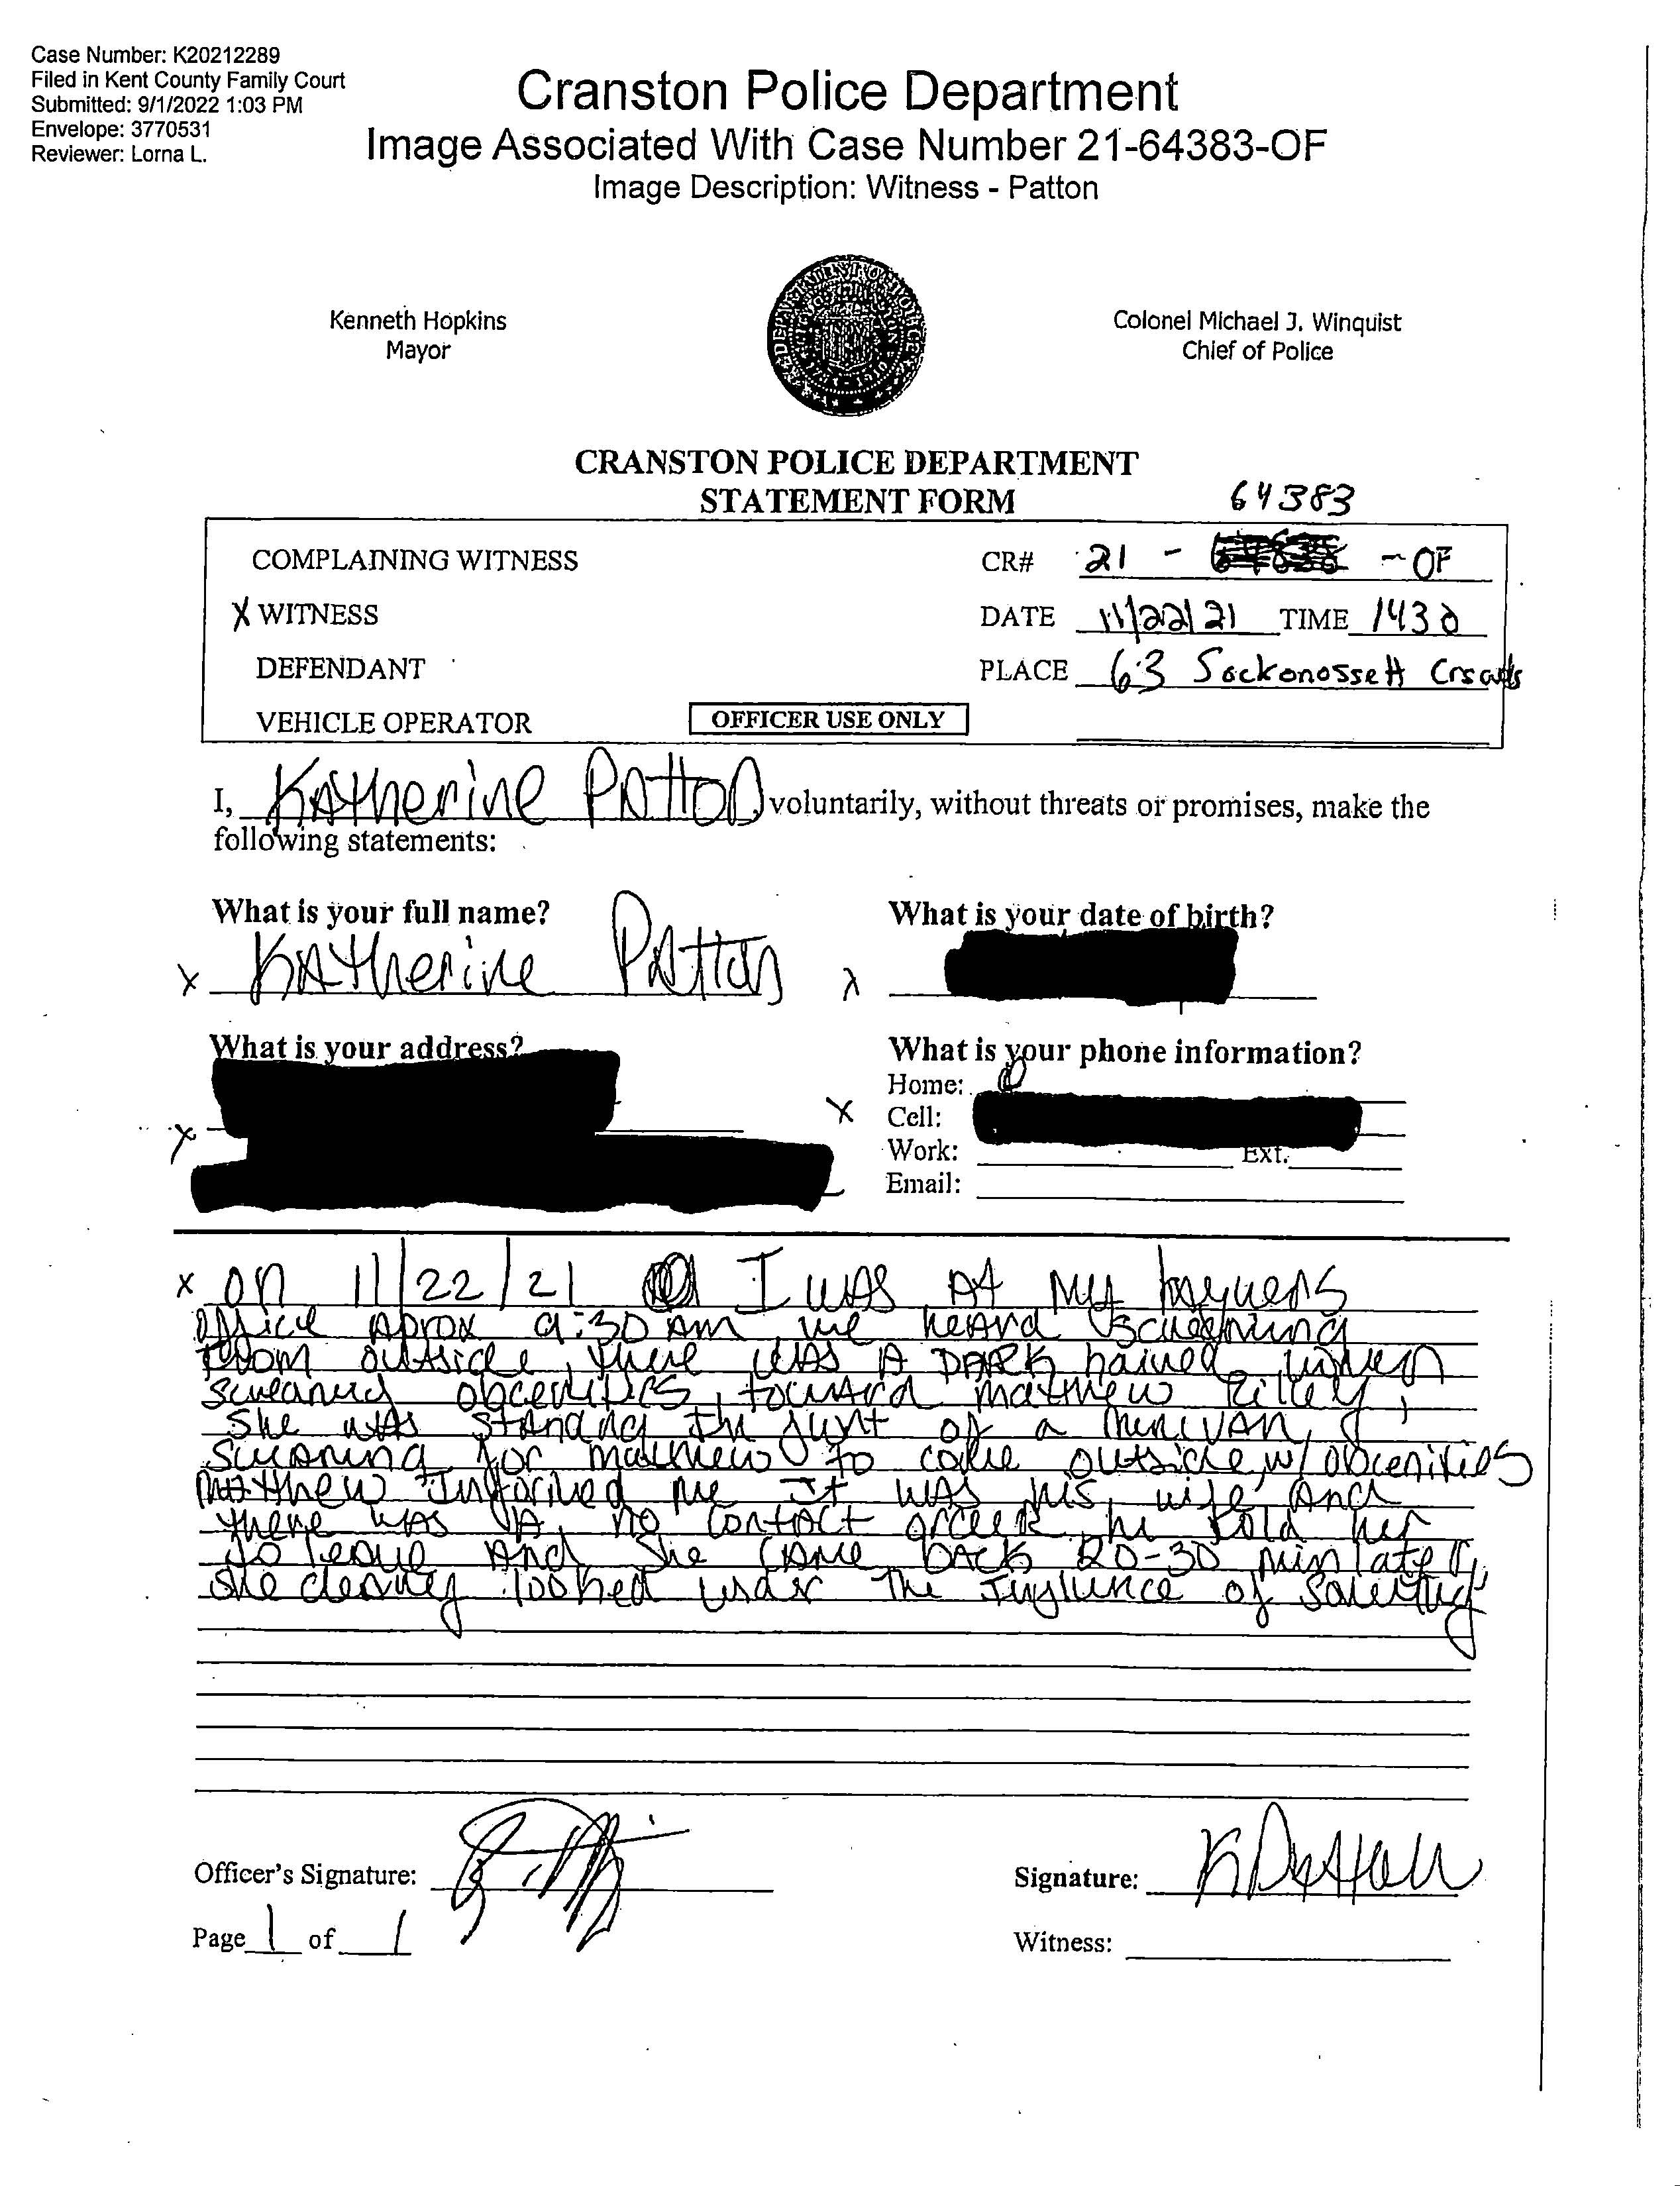 Case Number: K20212289
Filed in Kent County Family Court
Submitted: 9/1/2022 1:03 PM
Envelope: 3770531
Reviewer: Lorna L.
Cranston Police Department
Image Associated With Case Number 21-64383-OF
Image Description: Witness - Patton
Kenneth Hopkins
Mayor
Colonel Michael J. Winquist
Chief of Police
CRANSTON POLICE DEPARTMENT
STATEMENT FORM
64383
COMPLAINING WITNESS
CR# 21 - - OF
X WITNESS
DATE 11/22/21 TIME 1430
DEFENDANT
PLACE 63 Sockonossett
VEHICLE OPERATOR
OFFICER USE ONLY
I, Katherine Patton voluntarily, without threats or promises, make the
following statements:
What is your full name?
What is your date of birth?
X Katherine Patton X
What is your address?
What is your phone information?
Home:
X Cell:
X
Work: Ext.
Email:
X On 11/22/21 I was At My
Office Aprox 9:30 AM, we heard
From outside, there was A DARK haired
toward Mathew Rilley,
She was Standing In of a Minivan,
for Mathew to come outside, w/ obcenities
Matthew Informed me It was his wife And
there was A no contact he told her
to leave And She came back 20-30 min later,
She looked under The of
Officer's Signature:
Signature: K Patton
Page 1 of 1
Witness: